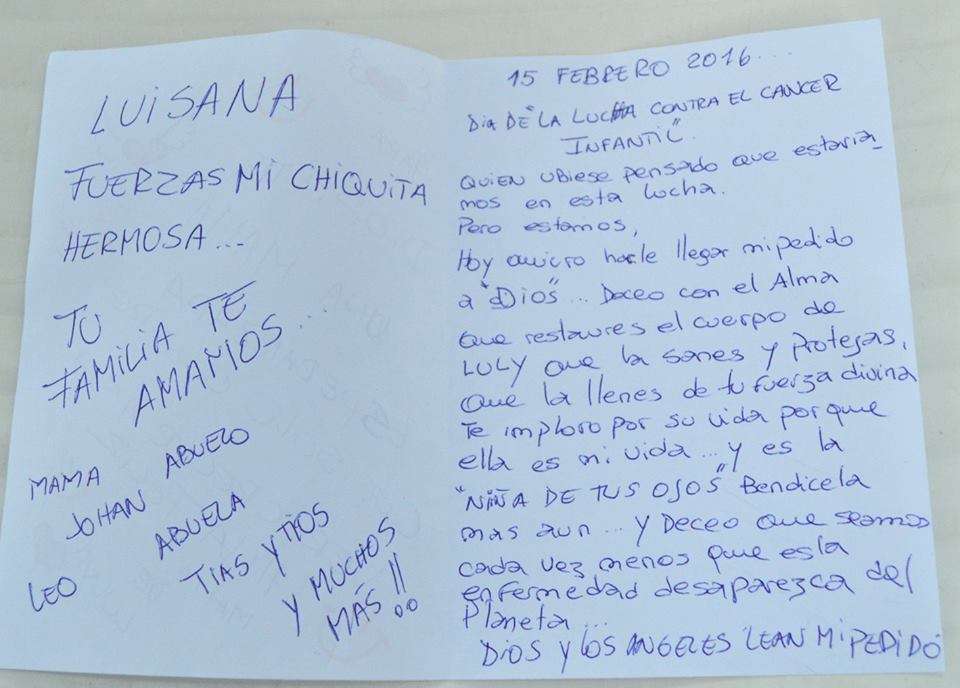 LUISANA
FUERZAS MI CHIQUITA
HERMOSA...
TU
FAMILIA TE
AMAMOS...
MAMA ABUELO
JOHAN
LEO ABUELA
TIAS Y TIOS
Y MUCHOS
MÁS!!
15 FEBRERO 2016...
DIA DE "LA LUCHA CONTRA EL CANCER
INFANTIL".
QUIEN UBIESE pensado que estaria_
mos en esta lucha.
Pero estamos,
Hoy quiero harle llegar mi pedido
a "Dios"... Deceo con el Alma
que restaures el cuerpo de
LULY que la sanes y Protejas,
que la llenes de tu fuerza divina
Te imploro por su vida porque
ella es mi vida... y es la
"NIÑA DE TUS OJOS" Bendicela
mas aun... y Deceo que seamos
cada vez menos que esta
enfermedad desaparezca del
Planeta...
DIOS Y LOS ANGELES LEAN MI PEDIDO